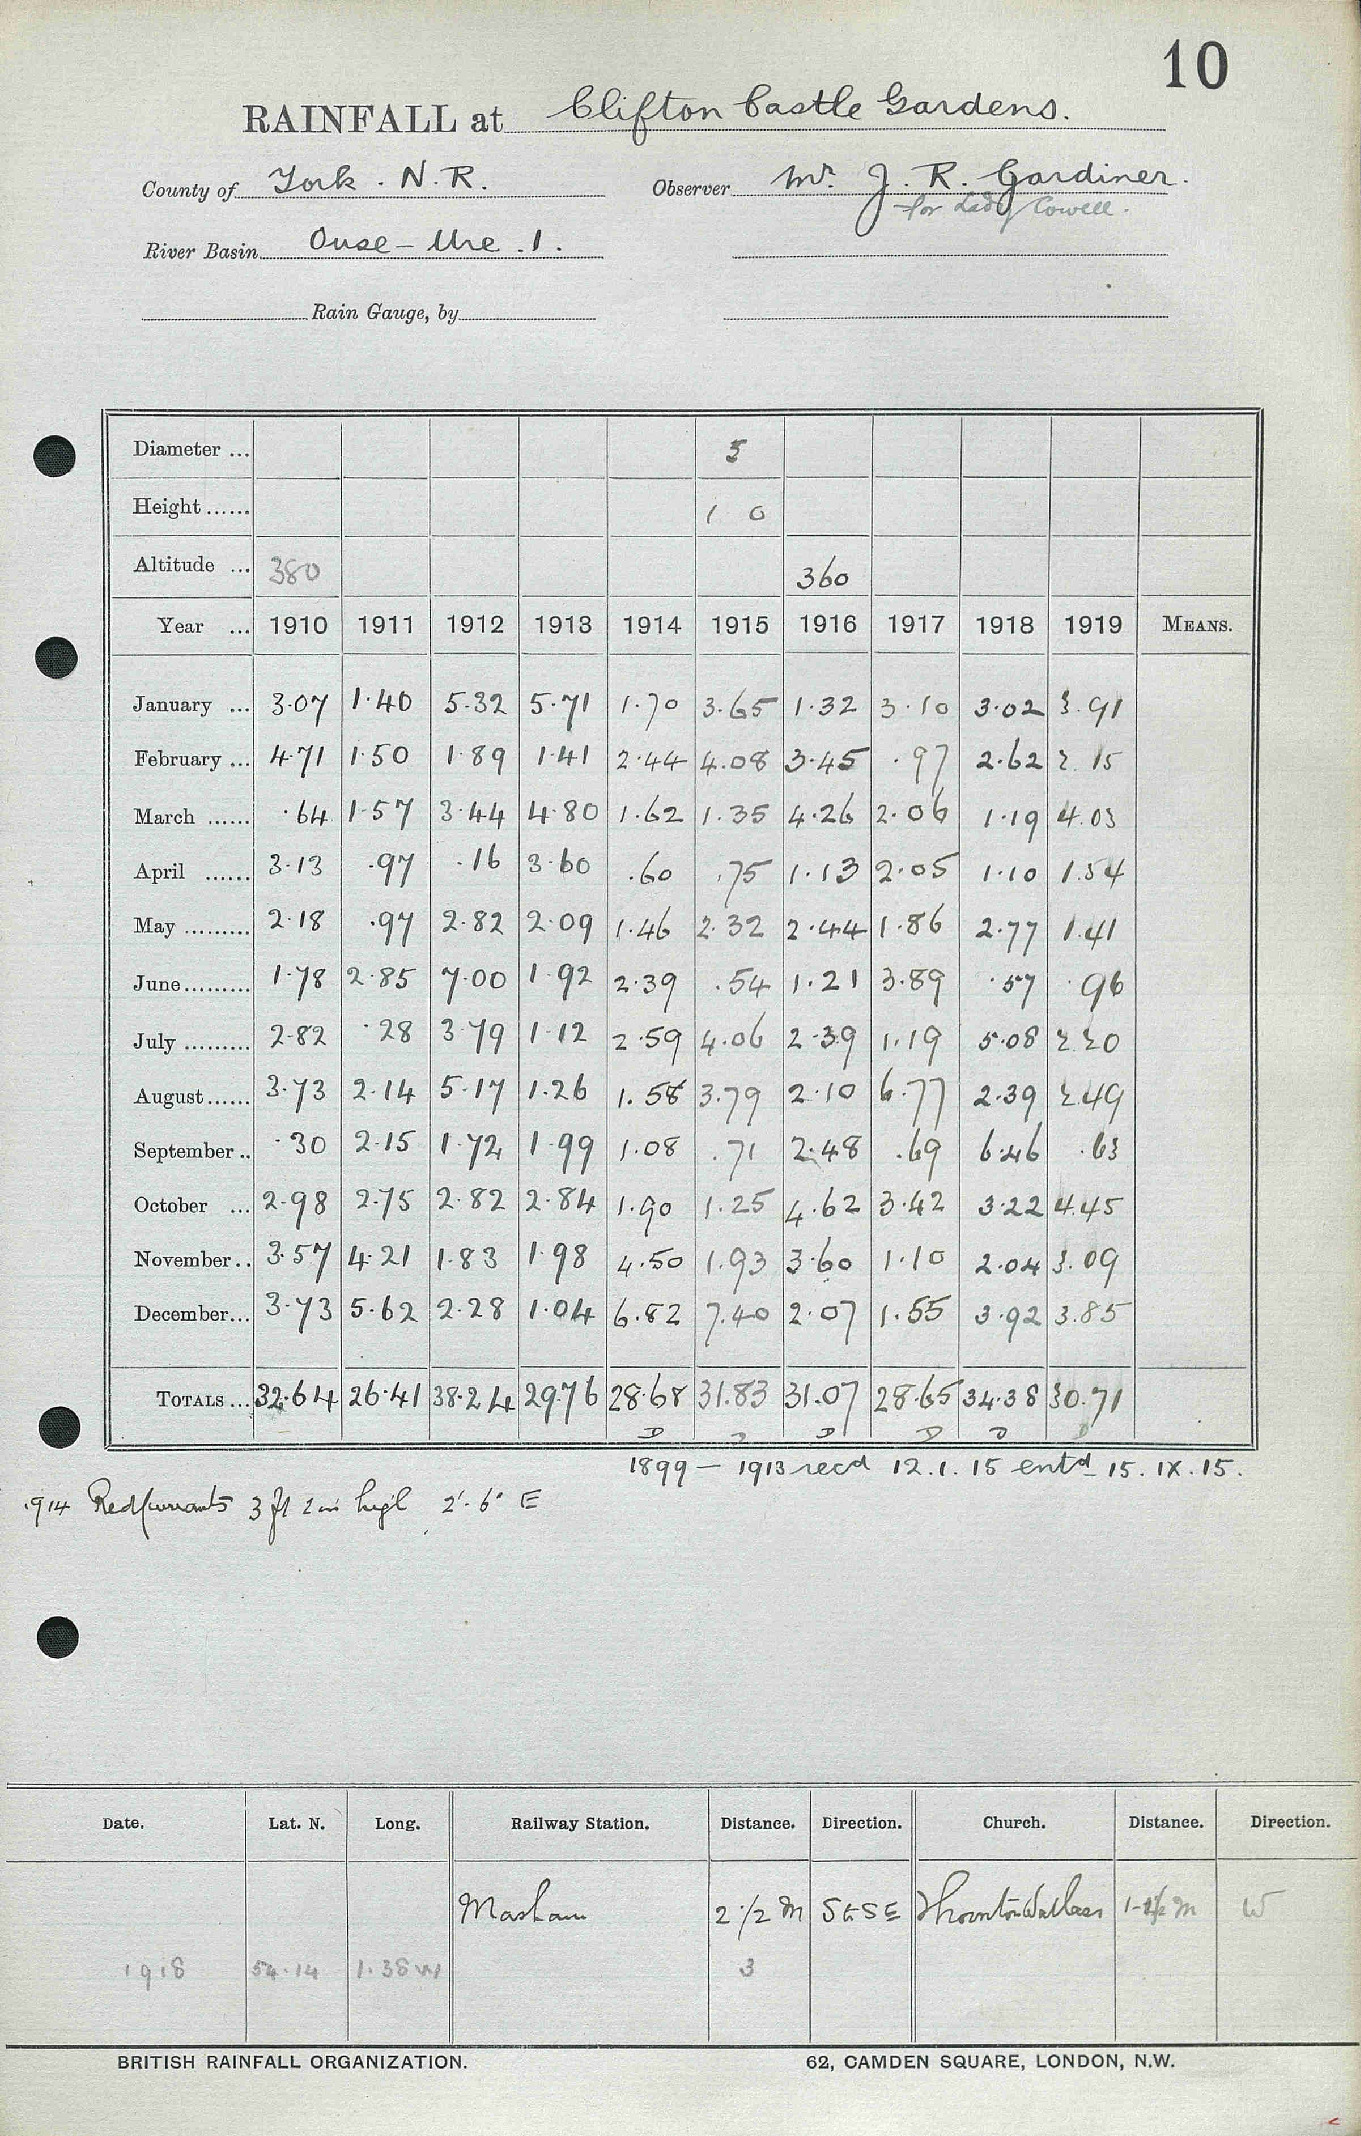 10
RAINFALL at Clifton Castle Gardens.
County of York. N.R. Observer Mr. J. R. Gardiner.
for Lady Cowell.
River Basin Ouse - Ure. 1.
Rain Gauge, by
Diameter ... 5
Height ...... 1 0
Altitude ... 380 360
Year ... 1910 1911 1912 1913 1914 1915 1916 1917 1918 1919 MEANS.
January ... 3.07 1.40 5.32 5.71 1.70 3.65 1.32 3.10 3.02 3.91
February ... 4.71 1.50 1.89 1.41 2.44 4.08 3.45 .97 2.62 2.15
March ...... .64 1.57 3.44 4.80 1.62 1.35 4.26 2.06 1.19 4.03
April ...... 3.13 .97 .16 3.60 .60 .75 1.13 2.05 1.10 1.54
May ......... 2.18 .97 2.82 2.09 1.46 2.32 2.44 1.86 2.77 1.41
June ......... 1.78 2.85 7.00 1.92 2.39 .54 1.21 3.89 .57 .96
July ......... 2.82 .28 3.79 1.12 2.59 4.06 2.39 1.19 5.08 2.20
August ...... 3.73 2.14 5.17 1.26 1.58 3.79 2.10 6.77 2.39 2.49
September .. .30 2.15 1.72 1.99 1.08 .71 2.48 .69 6.46 .63
October ... 2.98 2.75 2.82 2.84 1.90 1.25 4.62 3.42 3.22 4.45
November .. 3.57 4.21 1.83 1.98 4.50 1.93 3.60 1.10 2.04 3.09
December ... 3.73 5.62 2.28 1.04 6.82 7.40 2.07 1.55 3.92 3.85
TOTALS ... 32.64 26.41 38.24 29.76 28.68 31.83 31.07 28.65 34.38 30.71
D D D D D D
1899 - 1913 recd 12.1.15 entd 15.IX.15.
1914 Red Currants 3 ft 2 in high 2'. 6" E
Date. Lat. N. Long. Railway Station. Distance. Direction. Church. Distance. Direction.
Masham 2 1/2 m SESE Thornton Watlass W
1918 54.14 1.38 W 3
BRITISH RAINFALL ORGANIZATION. 62, CAMDEN SQUARE, LONDON, N.W.